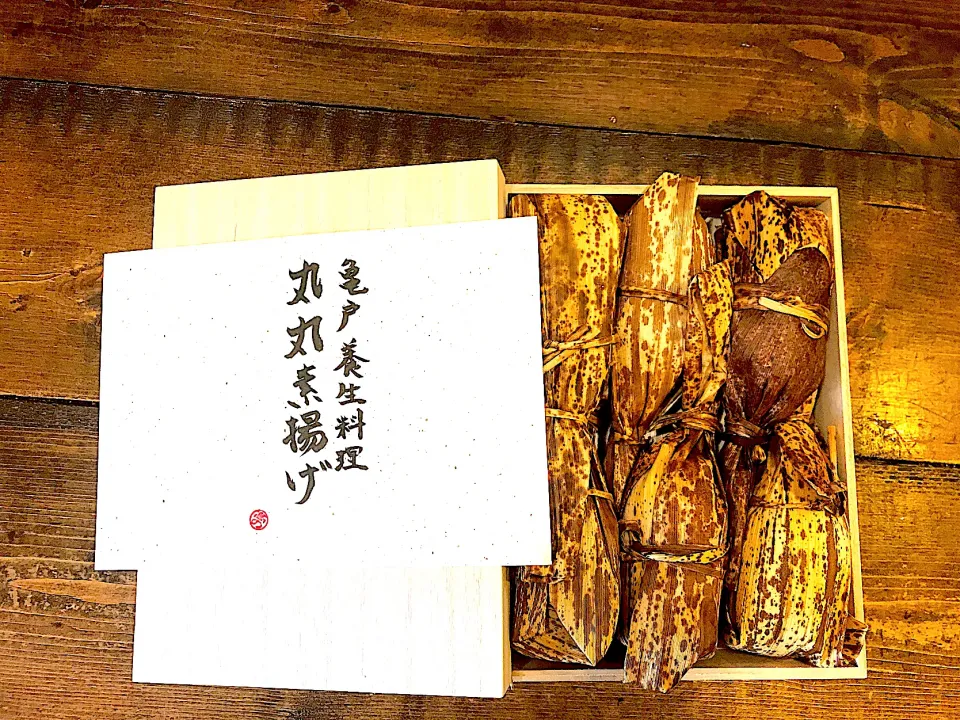 亀戸養生料理
丸丸素揚げ